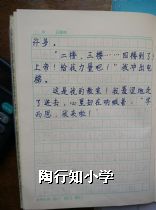 许多。
"二楼，三楼……四楼到了
上帝！给我力量吧！"我冲出电
梯。
这是我的教室！我蹑足地
走了进去，心里却在呐喊着："学
而思，我来啦！"
陶行知小学